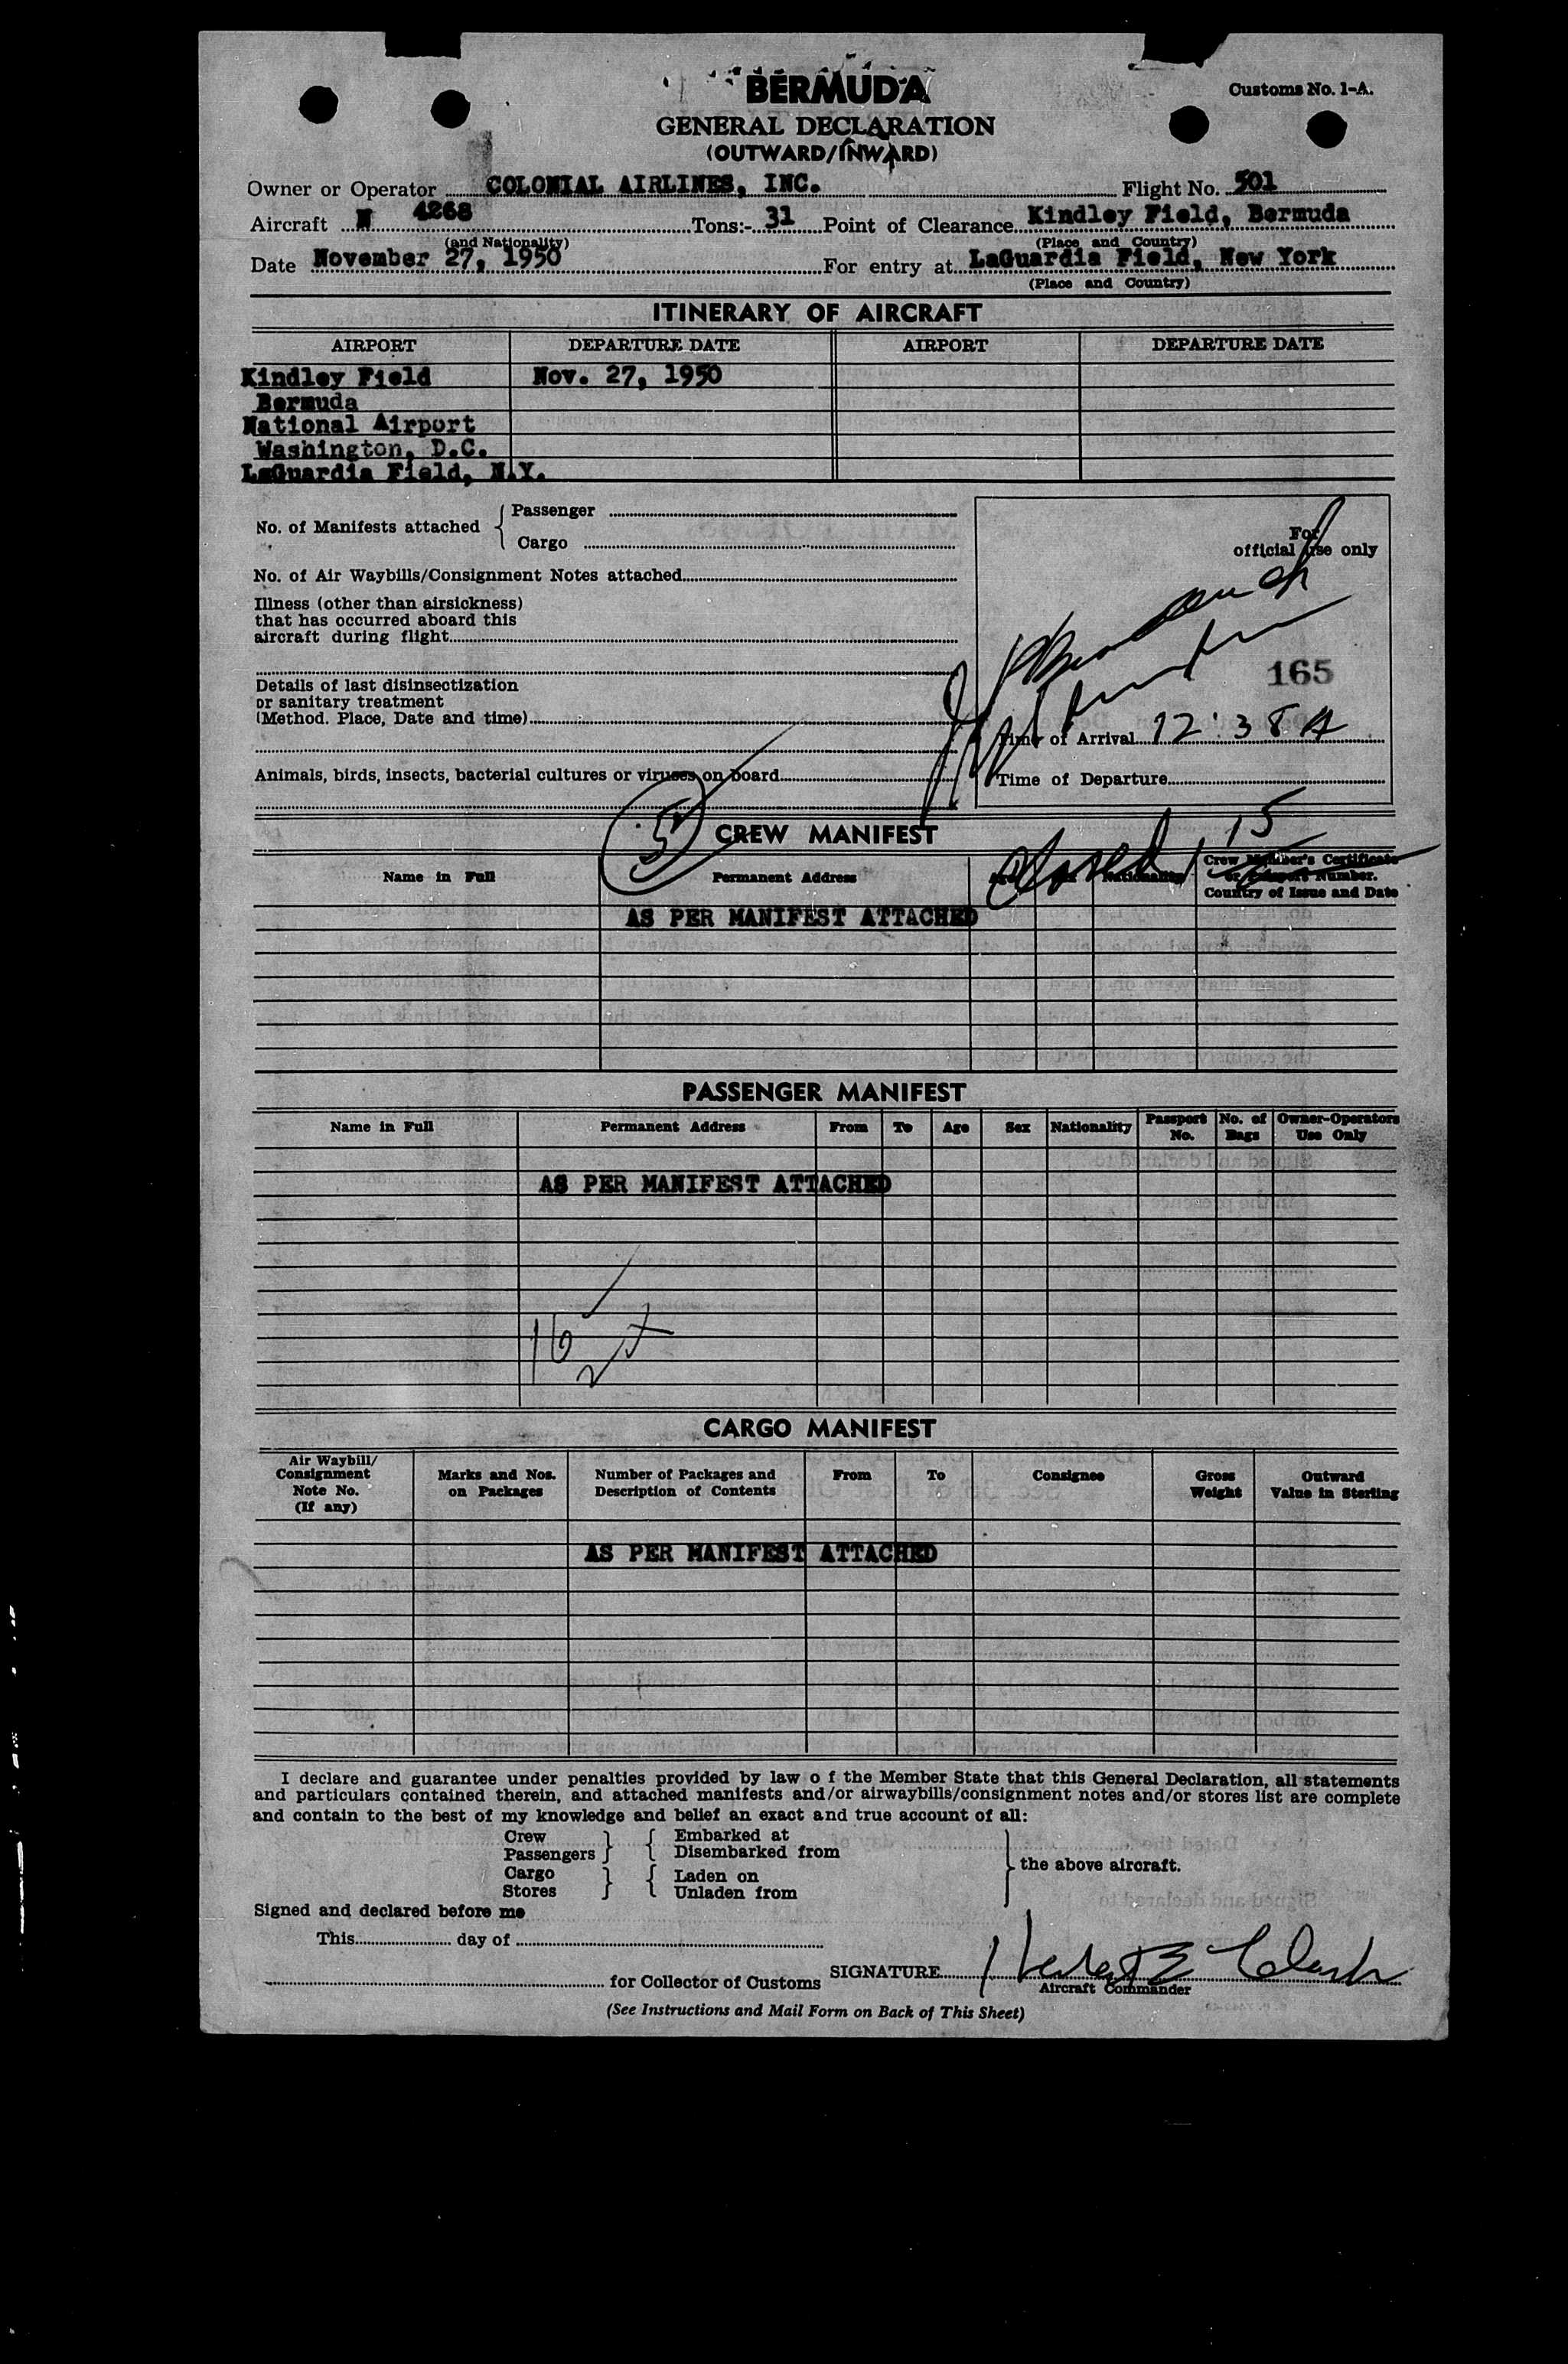 BERMUDA
Customs No. 1-A.
GENERAL DECLARATION
(OUTWARD/INWARD)
Owner or Operator COLONIAL AIRLINES, INC. Flight No. 501
Aircraft N 4268 Tons:- 31 Point of Clearance Kindley Field, Bermuda
(and Nationality) (Place and Country)
Date November 27, 1950 For entry at LaGuardia Field, New York
(Place and Country)
ITINERARY OF AIRCRAFT
AIRPORT DEPARTURE DATE AIRPORT DEPARTURE DATE
Kindley Field Nov. 27, 1950
Bermuda
National Airport
Washington, D.C.
LaGuardia Field, N.Y.
No. of Manifests attached { Passenger
Cargo
No. of Air Waybills/Consignment Notes attached
Illness (other than airsickness)
that has occurred aboard this
aircraft during flight
Details of last disinsectization
or sanitary treatment
(Method. Place, Date and time)
Animals, birds, insects, bacterial cultures or viruses on board
For
official use only
165
Time of Arrival 12:38 A
Time of Departure
5
CREW MANIFEST
Closed 1 15
Name in Full Permanent Address Nationality Crew Member's Certificate
or Passport Number.
Country of Issue and Date
AS PER MANIFEST ATTACHED
PASSENGER MANIFEST
Name in Full Permanent Address From To Age Sex Nationality Passport No. No. of Bags Owner-Operators Use Only
AS PER MANIFEST ATTACHED
16
CARGO MANIFEST
Air Waybill/ Consignment Note No. (If any) Marks and Nos. on Packages Number of Packages and Description of Contents From To Consignee Gross Weight Outward Value in Sterling
AS PER MANIFEST ATTACHED
I declare and guarantee under penalties provided by law o f the Member State that this General Declaration, all statements
and particulars contained therein, and attached manifests and/or airwaybills/consignment notes and/or stores list are complete
and contain to the best of my knowledge and belief an exact and true account of all:
Crew } { Embarked at
Passengers } { Disembarked from
Cargo } { Laden on
Stores } { Unladen from
} the above aircraft.
Signed and declared before me
This day of
for Collector of Customs SIGNATURE Herbert E Clark
Aircraft Commander
(See Instructions and Mail Form on Back of This Sheet)